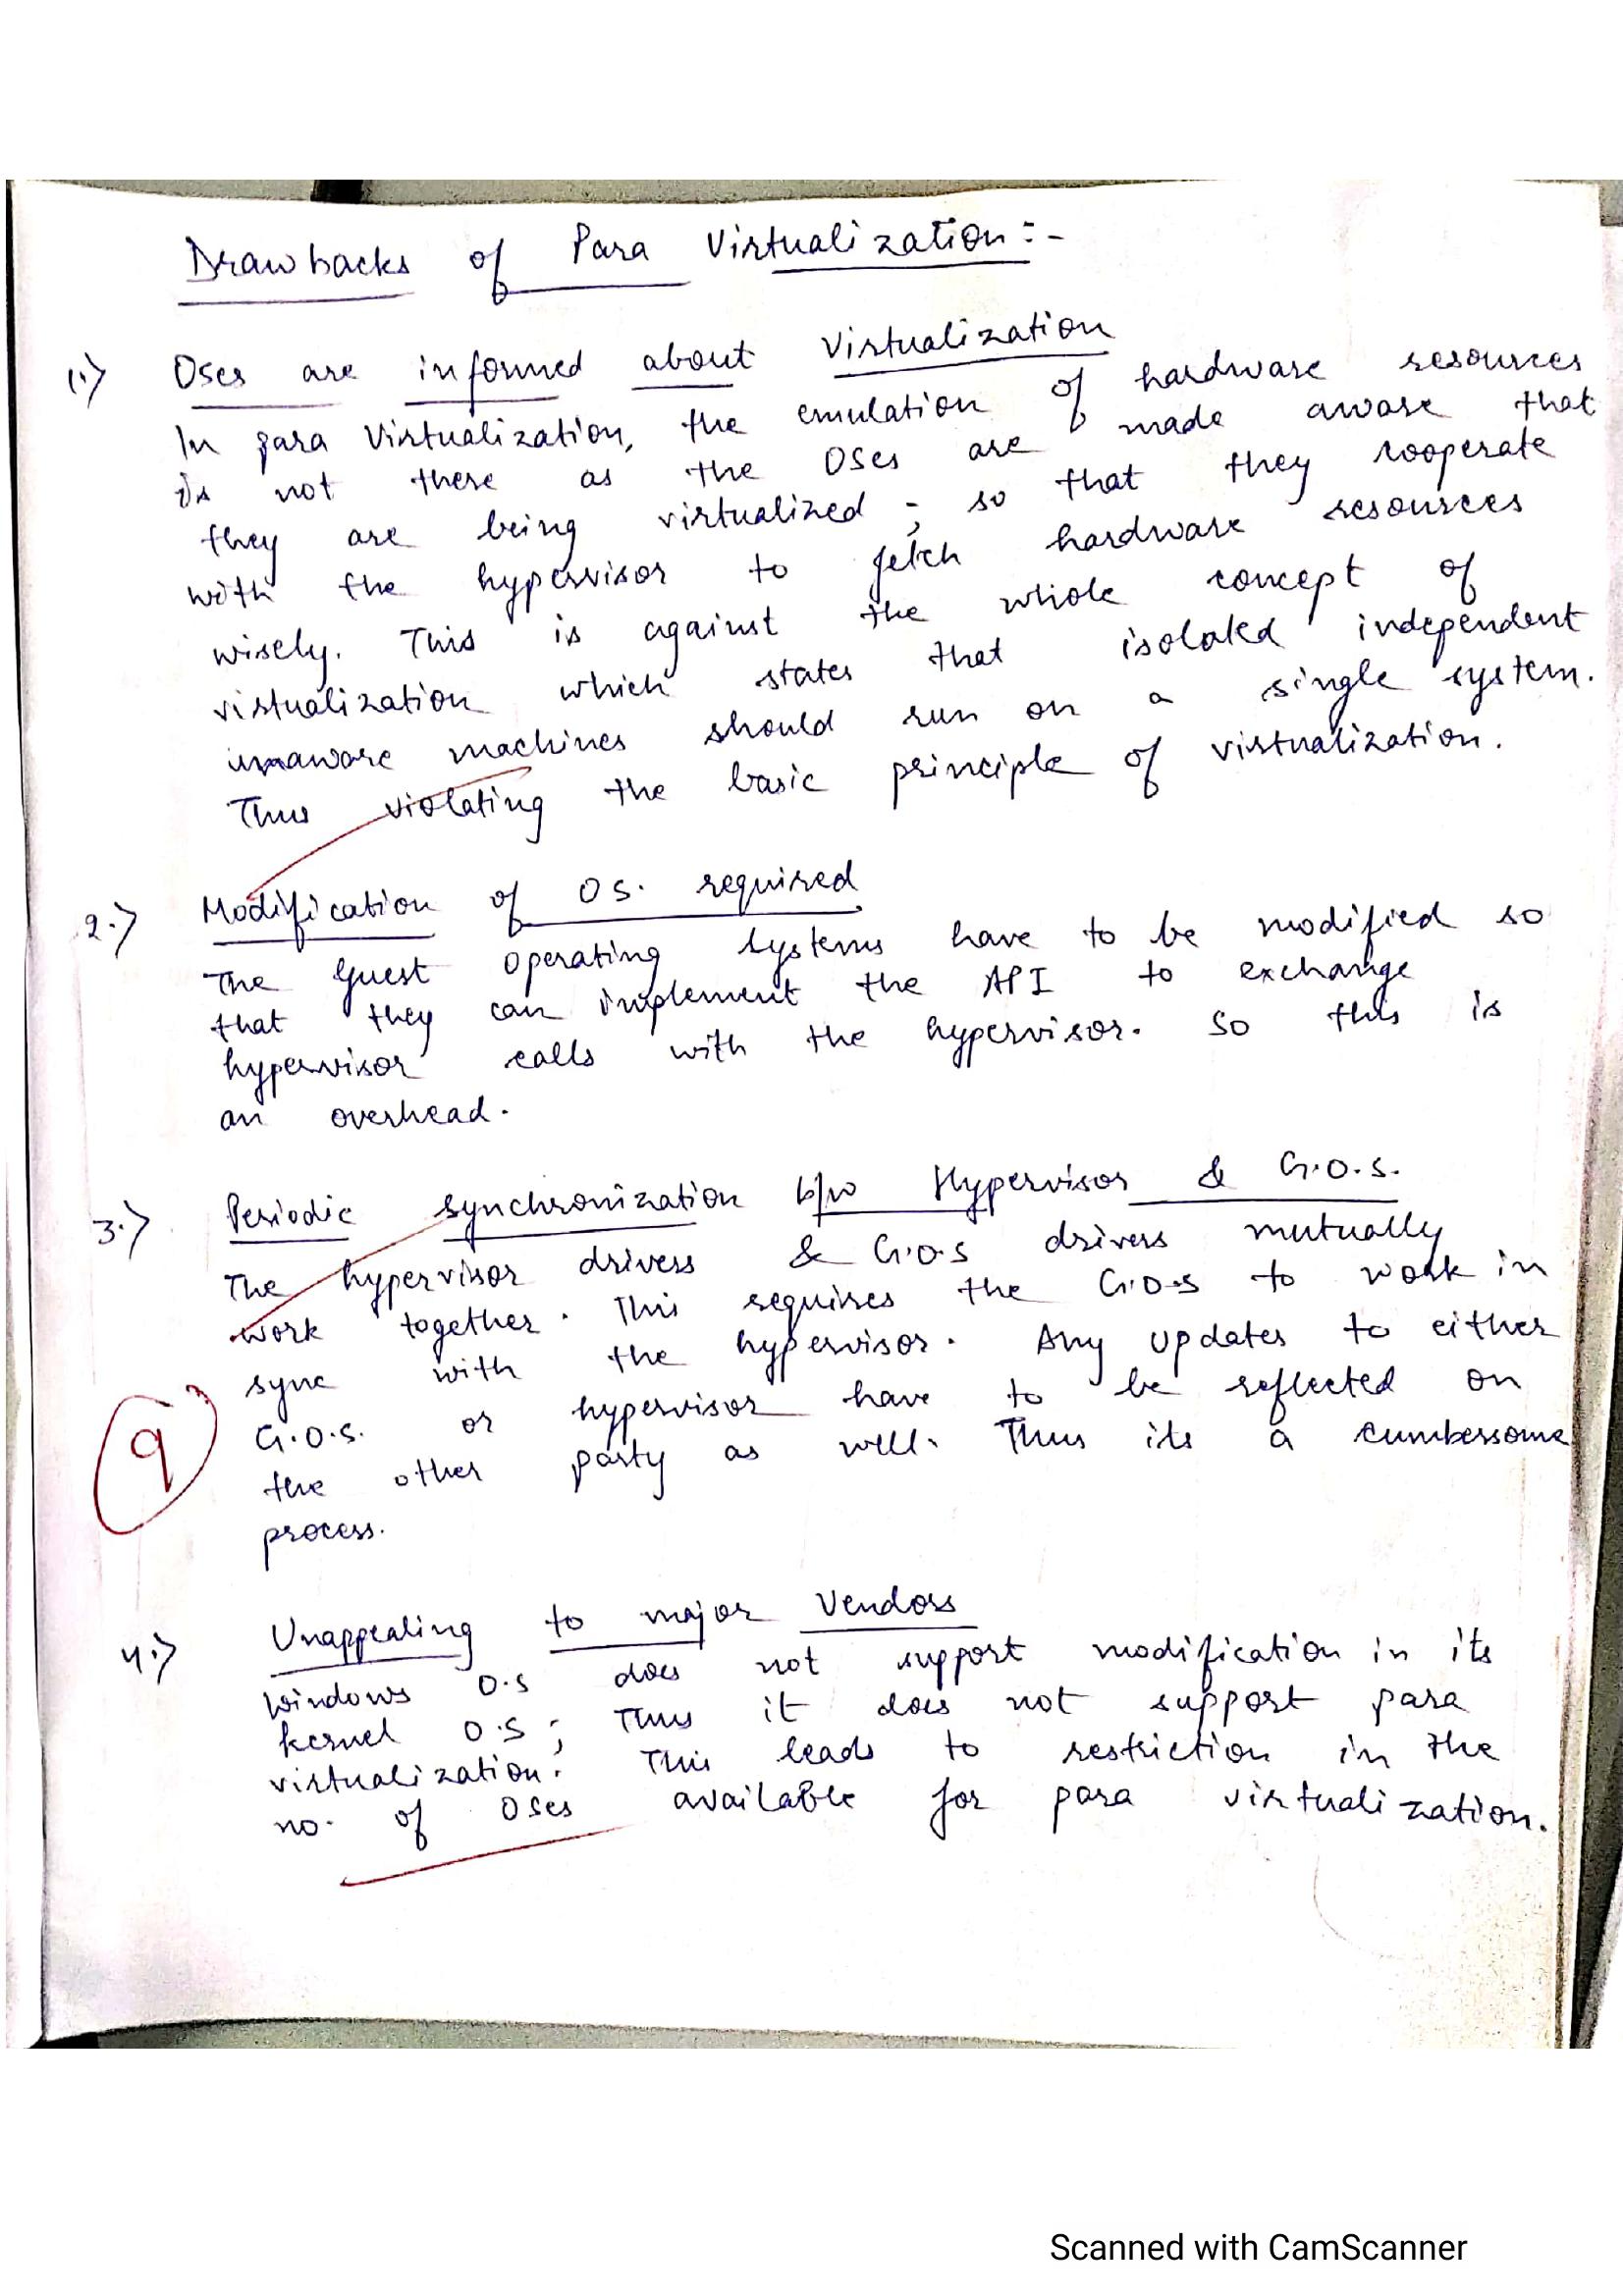 Drawbacks of Para Virtualization:-
1.) OSes are informed about Virtualization
In para Virtualization, the emulation of hardware resources
is not there as the OSes are made aware that
they are being virtualized; so that they cooperate
with the hypervisor to fetch hardware resources
wisely. This is against the whole concept of
virtualization which states that isolated independent
unaware machines should run on a single system.
Thus violating the basic principle of virtualization.
2.) Modification of OS. required
The guest operating systems have to be modified so
that they can implement the API to exchange
hypervisor calls with the hypervisor. So this is
an overhead.
3.) Periodic synchronization b/w Hypervisor & G.O.S.
The hypervisor drivers & G.O.S drivers mutually
work together. This requires the G.O.S to work in
sync with the hypervisor. Any updates to either
G.O.S. or hypervisor have to be reflected on
the other party as well. Thus its a cumbersome
process.
9
4.) Unappealing to major Vendors
Windows O.S does not support modification in its
kernel O.S; Thus it does not support para
virtualization. This leads to restriction in the
no. of OSes available for para virtualization.
Scanned with CamScanner